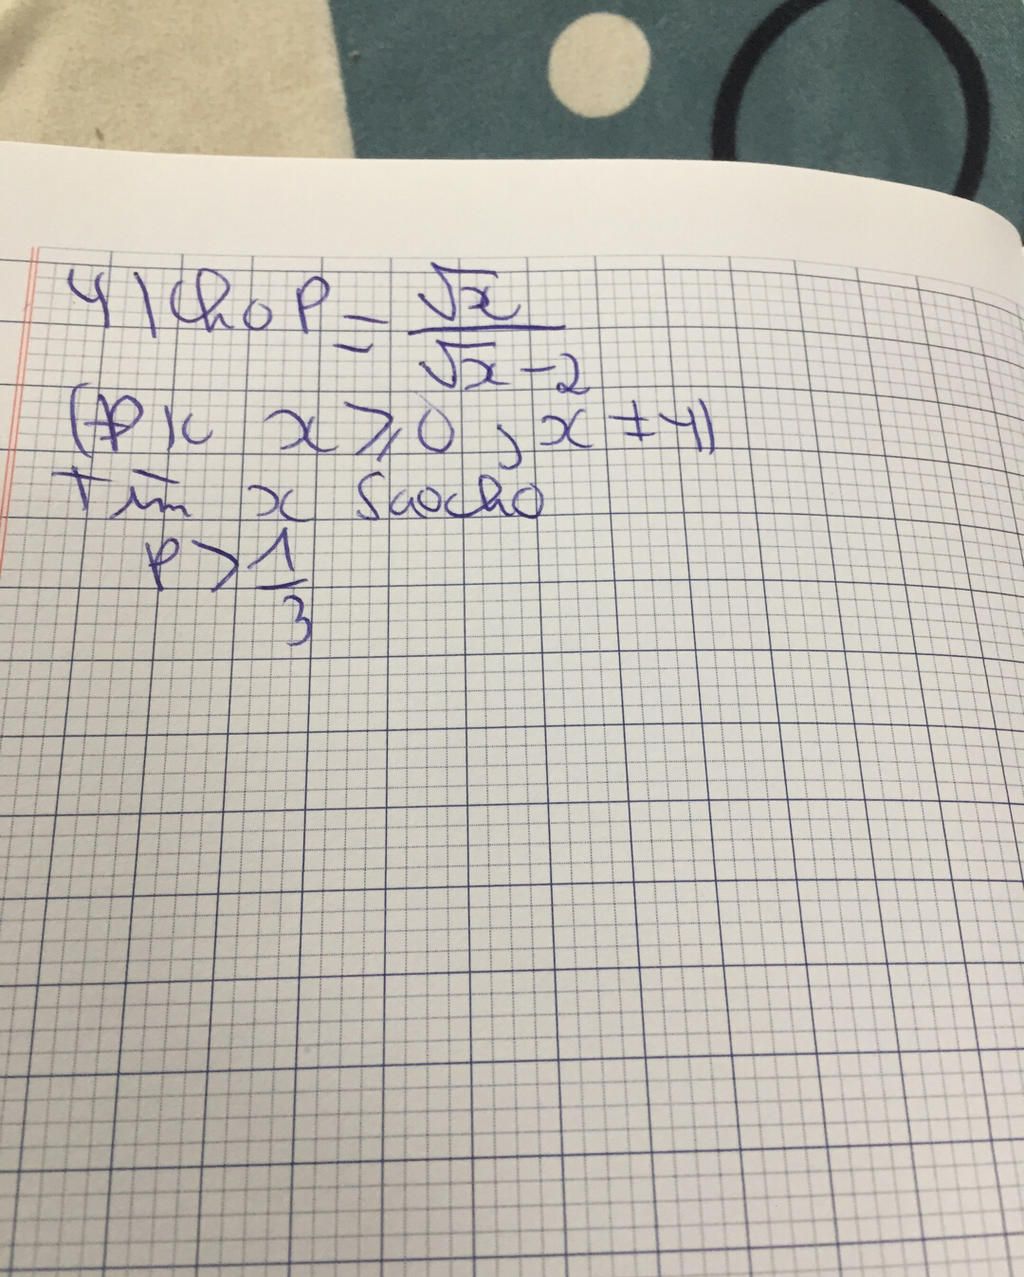 4) Cho P = √x / (√x - 2)
(ĐK x ≥ 0, x ≠ 4)
Tìm x sao cho
P > 1/3